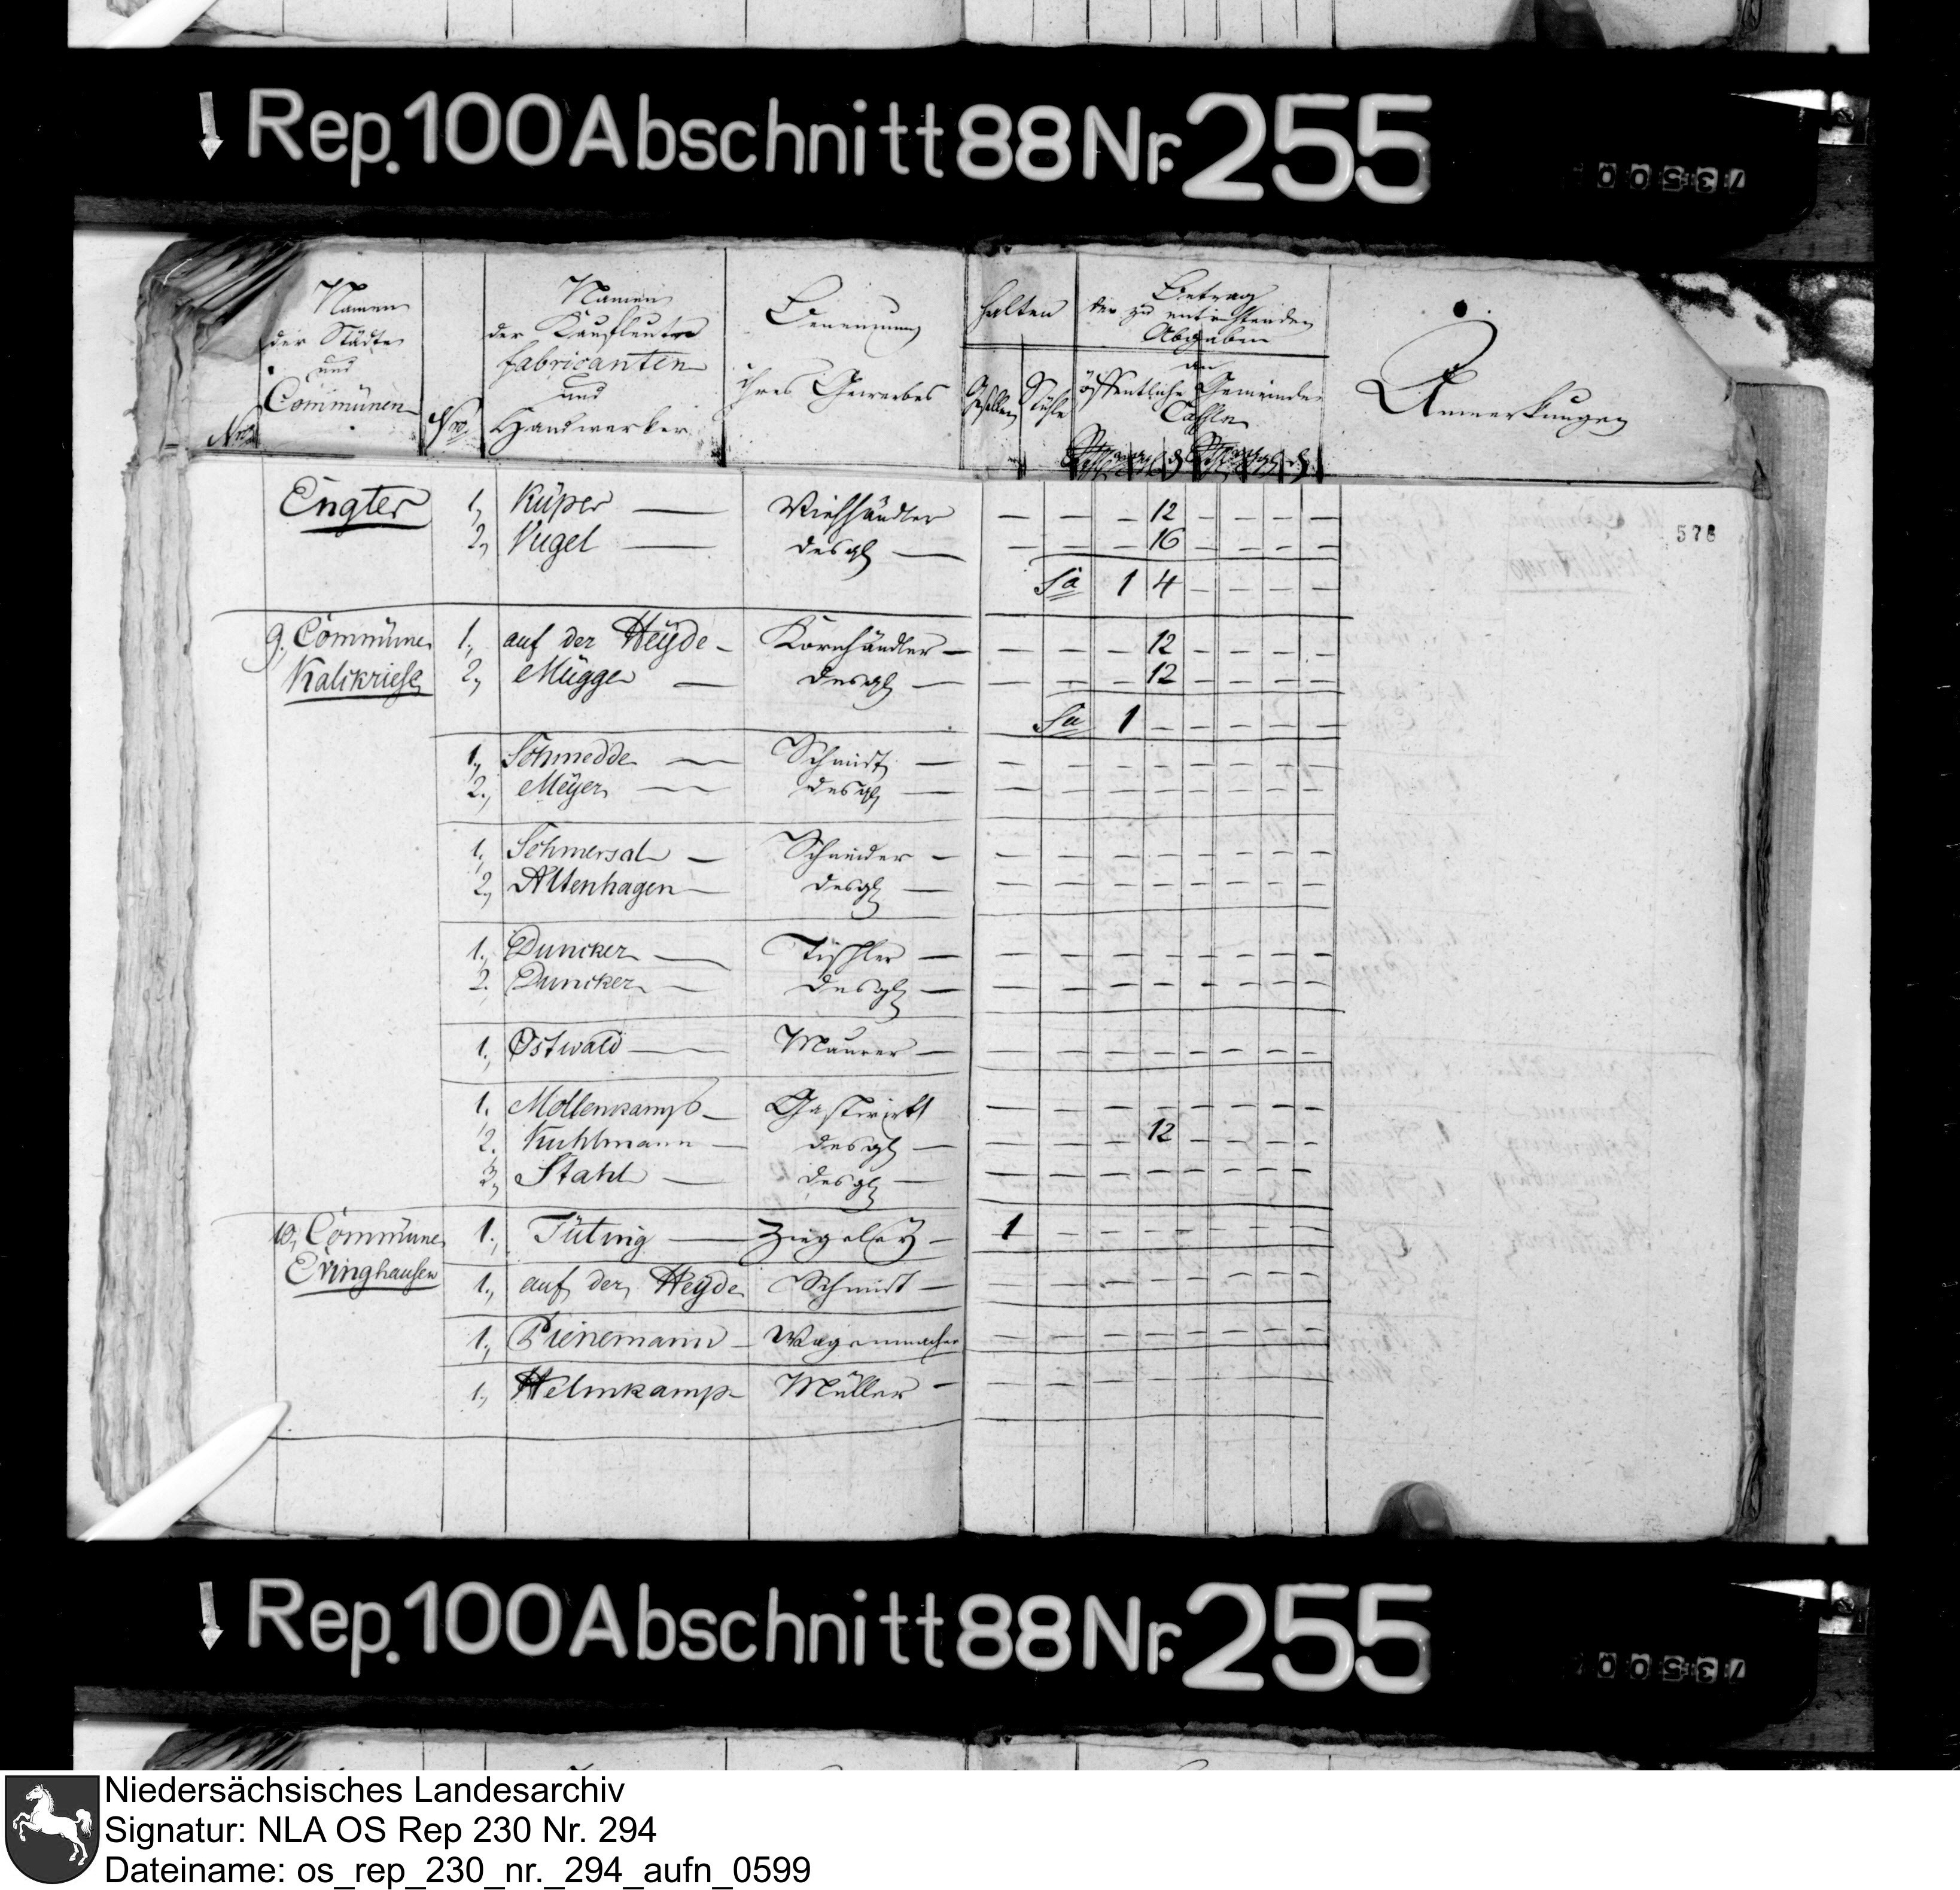 Rep. 100 Abschnitt 88 Nr. 255
Namen der Städte und Communen
Nro
Namen der Kaufleute fabricanten und Handwerker
Benennung ihres Gewerbes
halten
Gesellen Stühle
Betrag der zu entrichtenden Abgaben
an
öffentliche Gemeinde
Cassen
Anmerkungen
578
Engter 1, Küper — Viehhändler — — — 12 — — — —
2, Vugel — desgl — — — — 16 — — — —
Sa 1 4 — — — —
9, Commune 1., auf der Heÿde — Kornhändler — — — — 12 — — — —
Kalkriese 2, Mügge — desgl — — — — 12 — — — —
Sa 1 — — — — —
1., Schmedde — Schmidt — — — — — — — — —
2., Meÿer — desgl — — — — — — — — —
1., Schmersal — Schneider — — — — — — — — —
2, Altenhagen — desgl — — — — — — — — —
1., Duncker — Tischler — — — — — — — — —
2. Duncker — desgl — — — — — — — — —
1., Ostwald — Maurer — — — — — — — — —
1. Mollenkamp — Gastwirth — — — — — — — —
2. Kuhlmann — desgl — — — — 12 — — — —
3, Stahl — desgl — — — — — — — — —
10, Commune 1., Tüting — Ziegeley — 1 — — — — — — —
Evinghausen
1., auf der Heyde Schmidt — — — — — — — — —
1., Pienemann — Wagenmacher — — — — — — — —
1., Helmkamp — Müller — — — — — — — — —
Rep. 100 Abschnitt 88 Nr. 255
Niedersächsisches Landesarchiv
Signatur: NLA OS Rep 230 Nr. 294
Dateiname: os_rep_230_nr._294_aufn_0599